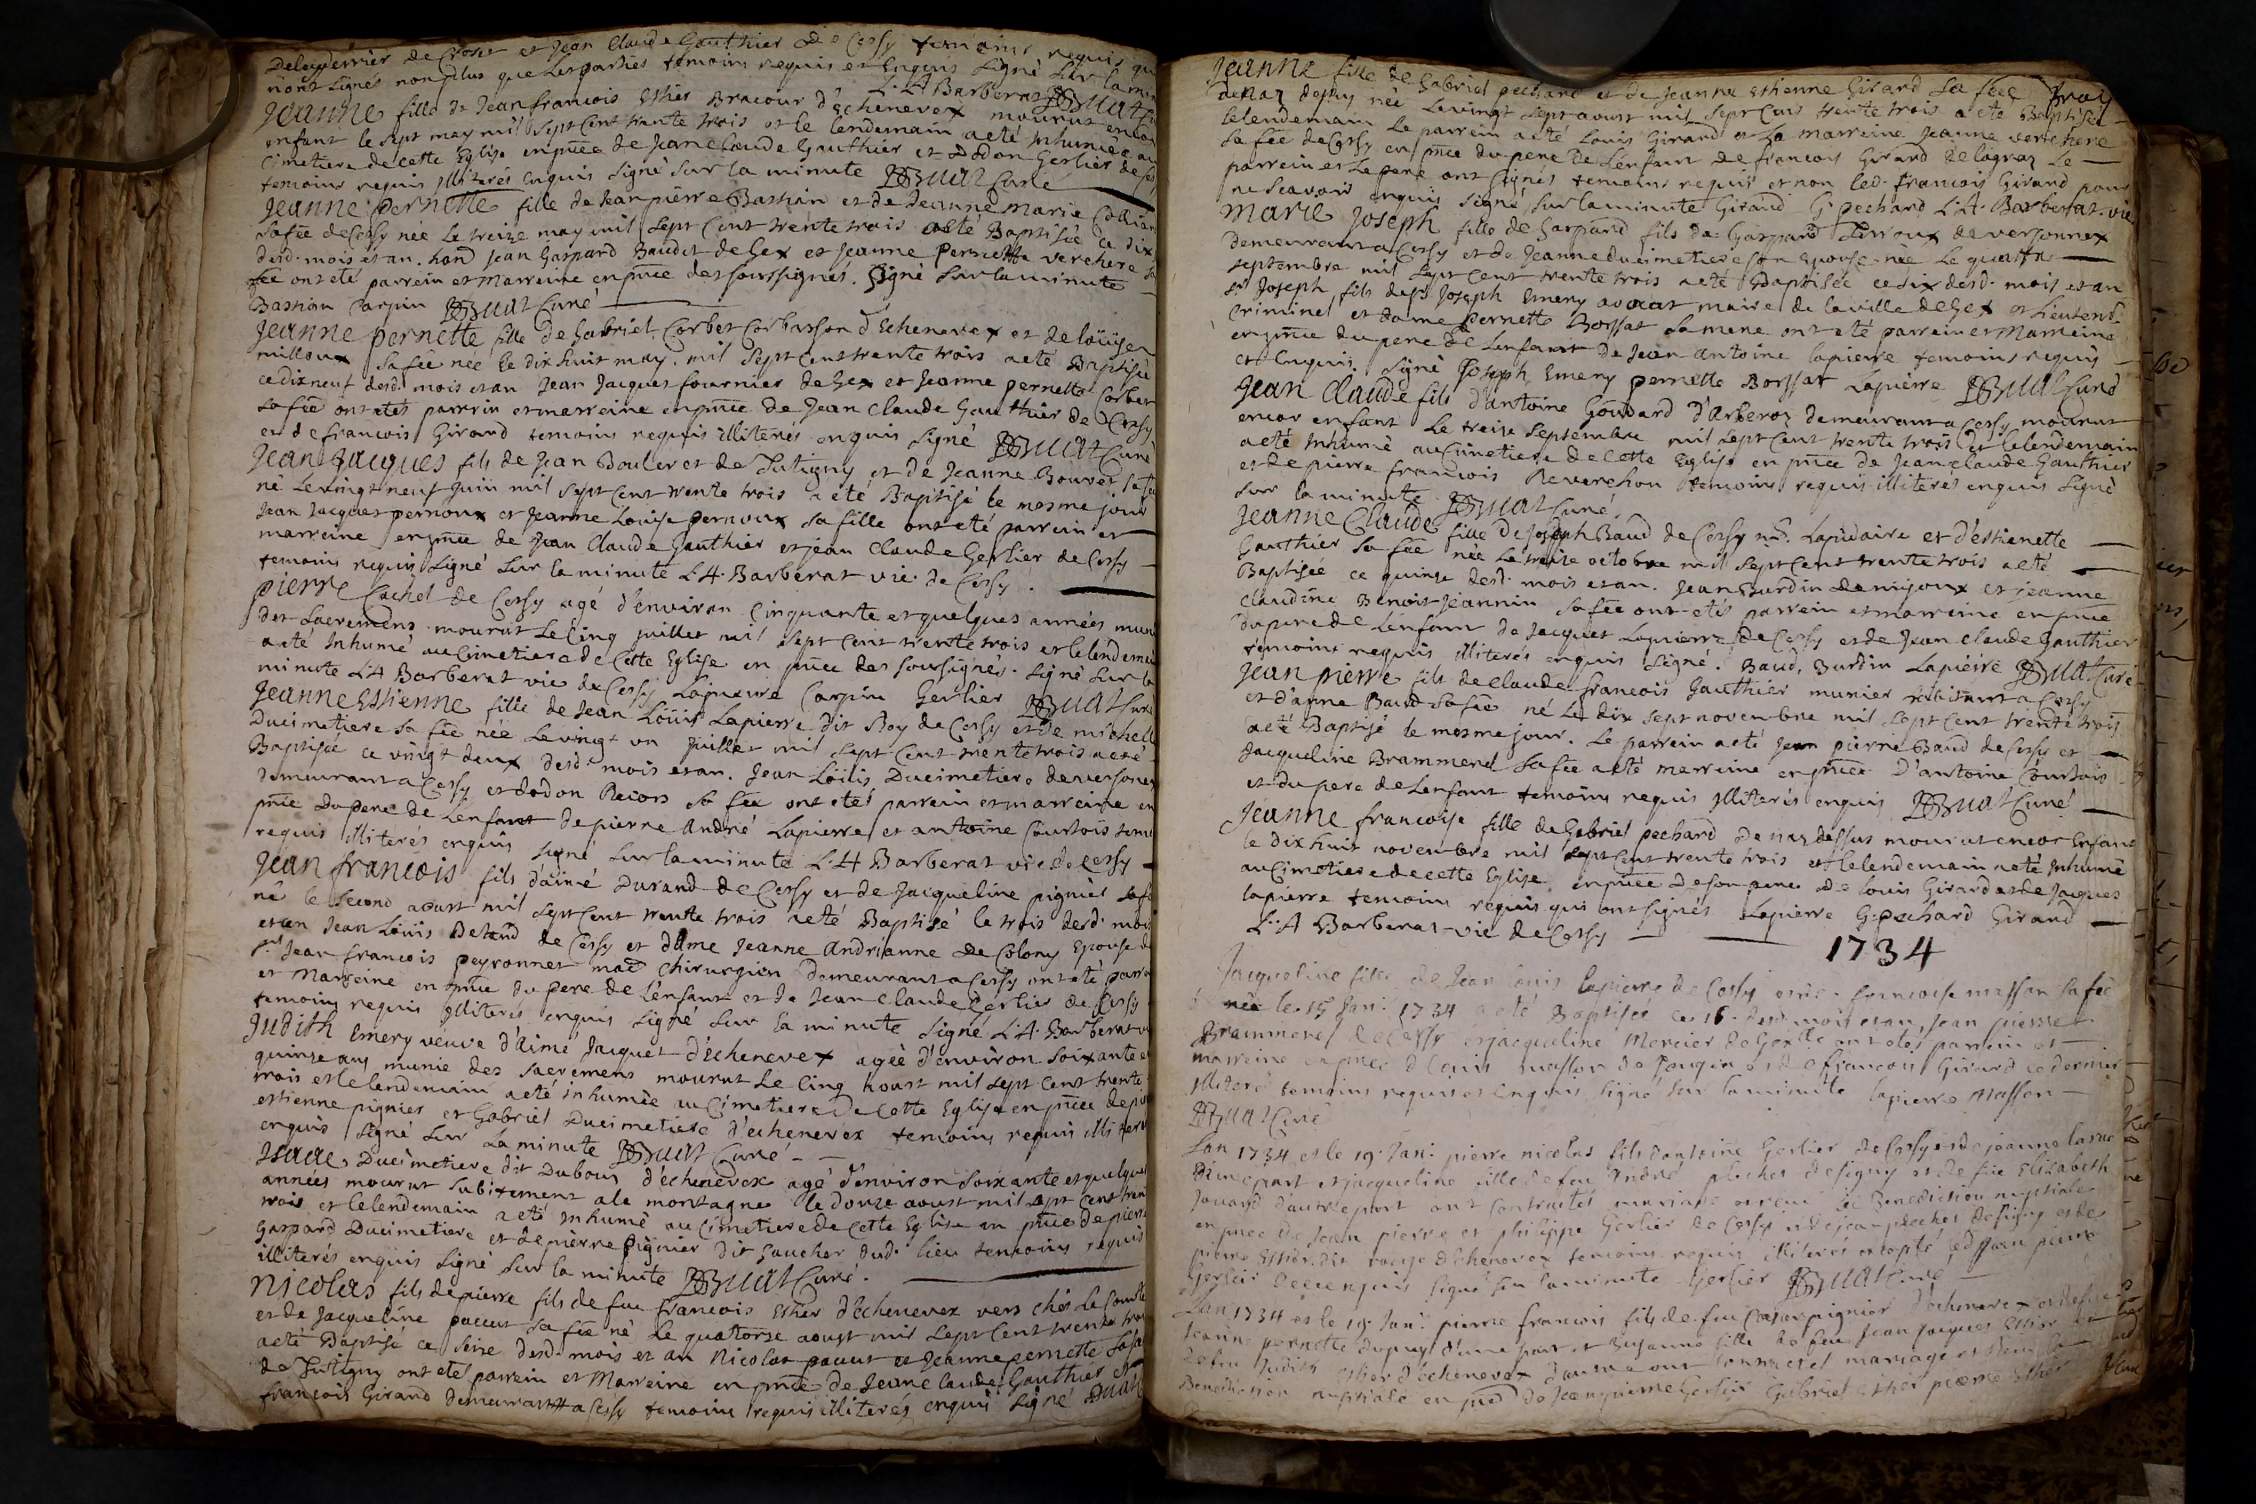 Delesderrier de Crozet et Jean Claude Gauthier de Cessy temoins requis qui
n'ont signés non plus que les parties temoins requis et enquis signé sur la min
L. A Barberat Buat Curé
Jeanne fille de Jean francois Esther Bracour d'Echenevex mourut encor
enfant le sept may mil sept cent trente trois et le lendemain a eté Inhumée au
Cimetiere de cette Eglise en pnce de Jean Claude Gauthier et Dodon Gerlier de Cessy
temoins requis Illiterés enquis signé sur la minute Buat Curé
Jeanne Pernette fille de Jean pierre Bastian et de Jeanne Marie
sa fée de Cessy née le treize may mil sept cent trente trois a eté Baptisée ce dix
desd. mois et an. hond Jean Gaspard Baudet de Gex et Jeanne Pernette Verchere sa
fée ont eté parrein et Marreine en pnce des soussignés. Signé sur la minute
Bastian Carpin Buat Curé
Jeanne pernette fille de Gabriel Corbet Corbasson d'Echenevex et de Loüise
milloux sa fée née le dix huit may mil sept cent trente trois a eté Baptisée
ce dix neuf desd. mois et an Jean Jacques fournier de Gex et Jeanne pernette Corbet
sa fée ont etés parrein et marreine en pnce de Jean Claude Gauthier de Cessy
et de francois Girard temoins requis illiterés enquis signé Buat Curé
Jean Jacques fils de Jean Bouler et de Tutigny et de Jeanne Bouver sa fée
né le vingt neuf Juin mil sept cent trente trois a eté Baptisé le mesme jour
Jean Jacques pernoux et Jeanne Loüise pernoux sa fille ont eté parrein et
marreine en pnce de Jean Claude Gauthier et Jean Claude Gerlier de Cessy
temoins requis signé sur la minute L. A. Barberat vic. de Cessy.
Pierre Cachet de Cessy agé d'environ Cinquante et quelques années muni
des sacremens mourut le Cinq Juillet mil sept cent trente trois et le lendemain
a eté Inhumé au Cimetiere de cette Eglise en pnce des soussignés. signé sur la
minute L A Barberat vic de Cessy Lapierre Carpin Gerlier Buat Curé
Jeanne Estienne fille de Jean Loüis Lapierre dit Roy de Cessy et de michelle
Ducimetiere sa fée née le vingt un Juillet mil sept cent trente trois a eté
Baptisée ce vingt deux desd. mois et an. Jean Loüis Ducimetiere de versonex
demeurant a Cessy et Dodon Recors sa fée ont etés parrein et marreine en
pnce du pere de Lenfant de pierre André Lapierre et antoine Courtois temoins
requis illiterés enquis signé sur la minute L. A Barberat vic de Cessy
Jean francois fils d'aimé Durand de Cessy et de Jacqueline pignier sa fée
né le second aoust mil sept cent trente trois a eté Baptisé le trois desd. mois
et an Jean Loüis Detand de Cessy et dame Jeanne Andrianne de Colony Epouse de
sr Jean francois peyronnet mae chirurgien demeurant a Cessy ont eté parrein
et Marreine en pnce du pere de l'enfant et de Jean Claude Gerlier de Cessy
temoins requis Illiterés enquis signé sur la minute signé L. A. Barberat vic
Judith Emery veuve d'aimé Jacquet d'echenevex agée d'environ soixante et
quinze ans munie des sacremens mourut le Cinq aoust mil sept cent trente
trois et le lendemain a eté inhumée au Cimetiere de cette Eglise en pnce de
estienne pignier et Gabriel Ducimetiere d'echenevex temoins requis illiterés
enquis signé sur la minute Buat Curé
Isaac Ducimetiere dit Dubour d'echenevex agé d'environ soixante et quelques
années mourut subitement a la montagne le douze aoust mil sept cent trente
trois et le lendemain a eté inhumé au Cimetiere de cette Eglise en pnce de pierre
Gaspard Ducimetiere et de pierre pignier dit Gaucher dud. lieu temoins requis
illiterés enquis signé sur la minute Buat Curé.
Nicolas fils de pierre fils de feu francois Esther d'echenevex vers chés le Comte
et de Jacqueline pacut sa fée né le quatorze aoust mil sept cent trente trois
a eté Baptisé ce seize desd. mois et an Nicolas pacut et Jeanne pernette sa
de Tutigny ont etés parrein et Marreine en pnce de Jeane Claude Gauthier et
francois Girard demeurant a Cessy temoins requis illiterés enquis signé Buat
Jeanne fille de Gabriel pechard et de Jeanne Estienne Girard sa fée
de Naz dessus née le vingt sept aoust mil sept cent trente trois a eté Baptisée
le lendemain Le parrein a eté Louis Girard et La marreine Jeanne verchere
sa fée de Cessy en pnce du pere de Lenfant de francois Girard de Le
parrein et Le pere ont signés temoins requis et non led. francois Girard pour
ne scavoir enquis signé sur la minute Girard G pechard L. A. Barberat vic
Marie Joseph fille de Gaspard fils de Gaspard Perroux de versonnex
demeurant a Cessy et de Jeanne ducimetiere son Epouse née Le quatre
septembre mil sept cent trente trois a eté Baptisée ce six desd. mois et an
sr Joseph fils de sr Joseph Emery avocat maire de la ville de Gex et Lieutent
criminel et dame Pernette Borssat sa mere ont eté parrein et Marreine
en pnce du pere de Lenfant de Jean antoine lapierre temoins requis
et Enquis. Signé Joseph Emery pernette Borssat Lapierre Buat Curé
Jean Claude fils d'antoine Goudard d'Arberoz demeurant a Cessy mourut
encor enfant Le treize septembre mil sept cent trente trois et le lendemain
a eté Inhumé au Cimetiere de cette Eglise en pnce de Jean claude Gauthier
et de pierre francois Reverchon temoins requis illiterés enquis signé
sur la minute Buat Curé.
Jeanne Claude fille de Joseph Baud de Cessy md. Lapidaire et d'estienette
Gauthier sa fée née Le treize octobre mil sept cent trente trois a eté
Baptisée ce quinze desd. mois et an. Jean Burdin de mijoux et Jeanne
claudine Benoit Jeannin sa fée ont etés parrein et marreine en pnce
du pere de Lenfant de Jacques Lapierre de Cessy et de Jean claude Gauthier
temoins requis illiterés enquis signé. Baud, Burdin Lapierre Buat Curé
Jean Pierre fils de claude francois Gauthier munier residant a Cessy
et d'anne Baud sa fée né Le dix sept novembre mil sept cent trente trois
a eté Baptisé le mesme jour. Le parrein a eté Jean pierre Baud de Cessy et
Jacqueline Brammerel sa fée a eté marreine en pnce d'antoine Courtois
et du pere de Lenfant temoins requis Illiterés enquis Buat Curé
Jeanne francoise fille de Gabriel pechard de naz dessus mourut encor Enfant
le dix huit novembre mil sept cent trente trois et le lendemain a eté Inhumé
au Cimetiere de cette Eglise en pnce de son pere de Louis Girard et de Jacques
lapierre temoins requis qui ont signés Lapierre G. pechard Girard
L. A Barberat vic de Cessy
1734
Jacqueline fille de Jean Louis lapierre de Cessy et de francoise masson sa fée
née le 15 Jan: 1734 a eté Baptisée ce 16 desd. mois et an, Jean pierre
Brammerel de Cessy et Jacqueline Mercier de Gex ont etés parrein et
marreine en pnce de Louis masson de Pougin et de francois Girard ce dernier
Illiteré temoins requis et enquis signé sur la minute lapierre Masson
Buat Curé
Lan 1734 et le 19. Jan: pierre nicolas fils d'antoine Gerlier de Cessy et de jeanne
d'une part et jacqueline fille de feu André pleches de signy et de feue Elizabeth
Jouard d'autre part ont contractés mariage et receu la Benediction nuptiale
en pnce de Jean pierre et philippe Gerlier de Cessy et de jean pleches de signy et de
pierre Esther dit rouge d'echenevex temoins requis illiterés excepté led. Jean pierre
Gerlier enquis signé sur la minute Gerlier Buat Curé
Lan 1734 et le 19. Jan: pierre francois fils de feu Cesar pignier d'echenevex et de feue
Jeanne pernette dupuy d'une part et Suzanne fille de feu Jean Jacques Esther et
de feu Judith Esther d'echenevex d'autre ont contracté mariage et receu la
Benediction nuptiale en pnce de Jean pierre Gerlier Gabriel Esther pierre Esther